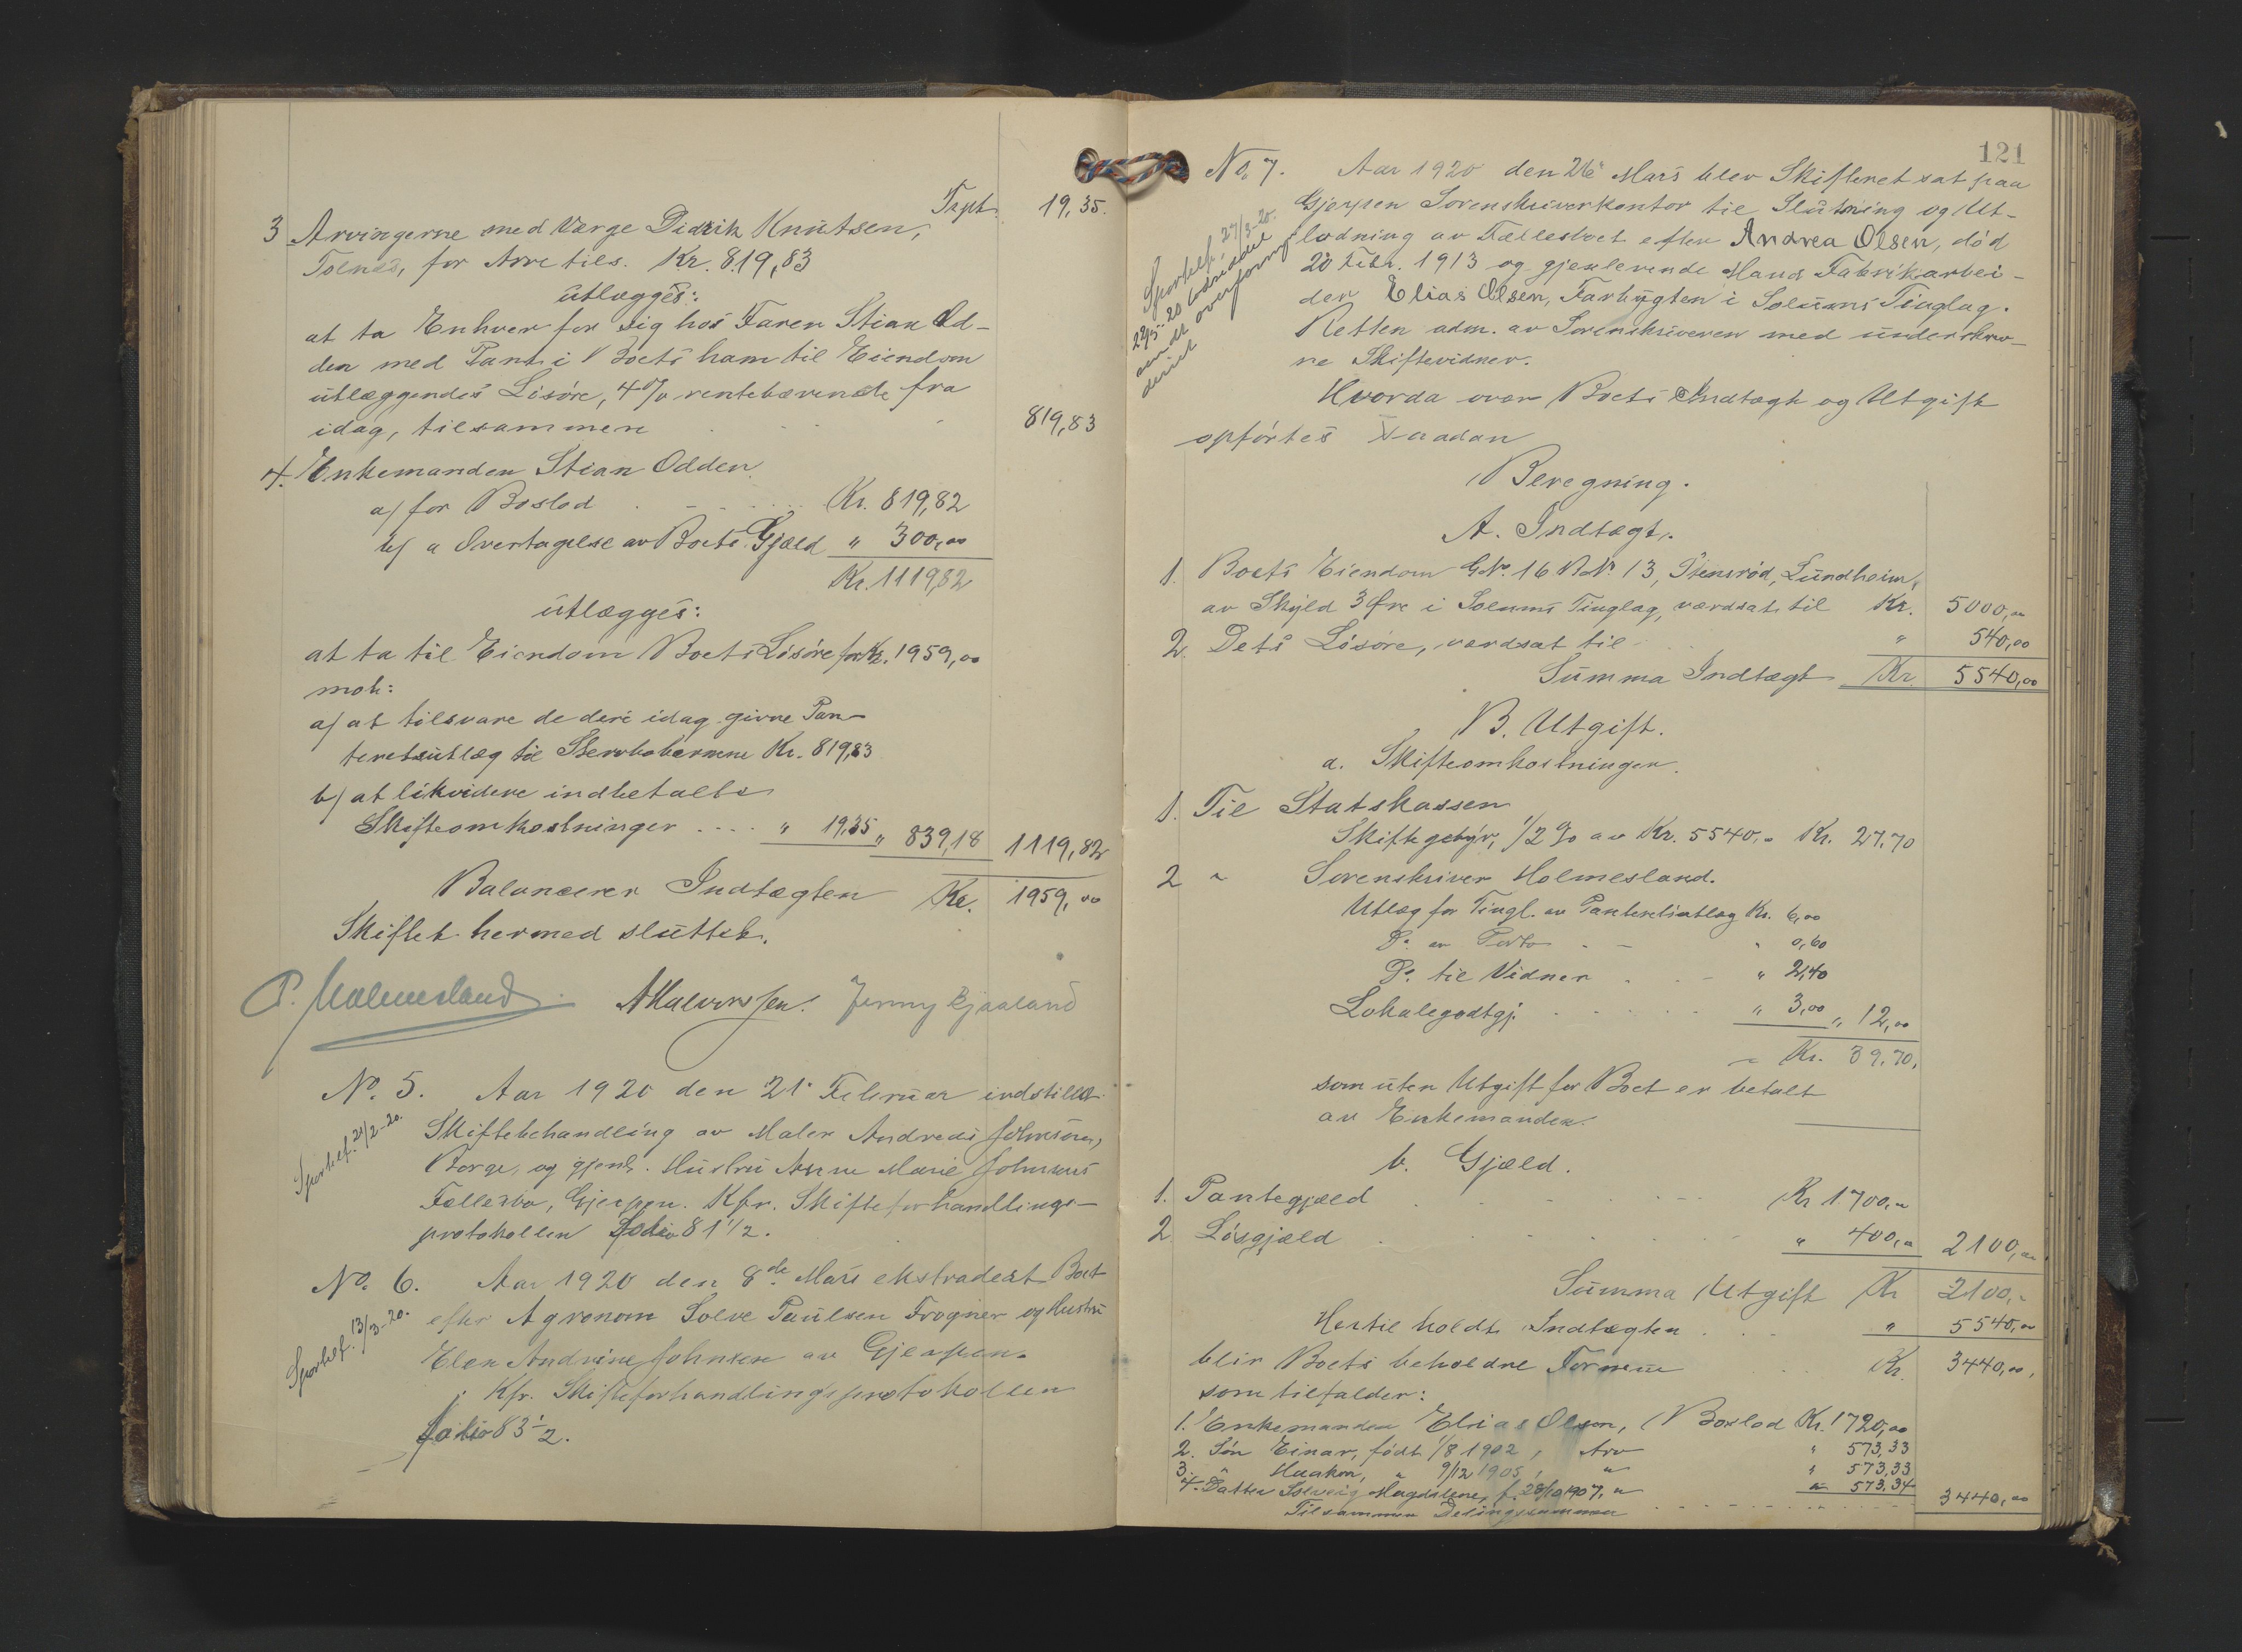 Trspt. 19,35.
3 Arvingerne med Værge Didrik Knutsen,
Tolnes, for Arv tils. Kr. 819,83
utlægges:
at ta Enhver for sig hos Faren Stian Od-
den med Pant i Boets ham til Eiendom
utlæggendes Løsøre, 4 % rentebærende fra
idag, tilsammen 819,83
4. Enkemanden Stian Odden
a/ for Boslod Kr. 819,82
b/ " Overtagelse av Boets Gjæld " 300,00
Kr. 1119,82
utlægges:
at ta til Eiendom Boets Løsøre for Kr. 1959,00
mot:
a/ at tilsvare de deri idag givne Pan-
teretsutlæg til Stervbobørnene Kr. 819,83
b/ at likvidere indbetalte
Skifteomkostninger .... " 19,35 " 839,18 1119,82
Balancerer Indtægten Kr. 1959,00
Skiftet hermed sluttet.
P. Holmesland. A Halvorsen. Jenny Bjaaland
No. 5. Aar 1920 den 21. Februar indstillet
Sportelf. 21/2-20.
Skiftebehandling av Maler Andreas Johnsens,
Borge, og gjenl. Hustru Anne Marie Johnsens
Fællesbo, Gjerpen. Kfr. Skifteforhandlings-
protokollen Folio 81 1/2.
No. 6. Aar 1920 den 8de Mars ekstradert Boet
Sportelf. 13/3-20.
efter Agronom Solve Paulsen Frogner og Hustru
Elen Andrine Johnsen av Gjerpen.
Kfr. Skifteforhandlingsprotokollen
folio 83 1/2.
121
No. 7. Aar 1920 den 26' Mars blev Skifteret sat paa
Gjerpen Sorenskriverkontor til Slutning og Ut-
lodning av Fællesboet efter Andrea Olsen, død
20 Febr. 1913 og gjenlevende Mand Fabrikarbei-
der Elias Olsen, Farbygten i Solums Tinglag.
Retten adm. av Sorenskriveren med underskrev-
ne Skiftevidner.
Sportelf. 27/3-20.
22/5-20
Hvorda over Boets Indtægt og Utgift
opførtes saadan
Beregning.
A. Indtægt.
1. Boets Eiendom GNo. 16 BNo. 13, Stensrød, Lundheim,
av Skyld 3 Øre i Solums Tinglag, værdsat til Kr. 5000,00
2. Dets Løsøre, værdsat til " 540,00
Summa Indtægt Kr. 5540,00
B. Utgift.
a. Skifteomkostninger.
1. Til Statskassen
Skiftegebyr, 1/2 % av Kr. 5540,- Kr. 27,70
2 " Sorenskriver Holmesland.
Utlæg for Tingl. av Panteretsutlæg Kr. 6,00
Do. av Porto " 0,60
Do. til Vidner " 2,40
Lokalegodtgj. " 3,00 " 12,00
Kr. 39,70.
som uten Utgift for Boet er betalt
av Enkemanden.
b. Gjæld.
1. Pantegjæld Kr 1700,00
2. Løsgjæld " 400,00 2100,00
Summa Utgift Kr 2100,-
Hertil holdt Indtægten " 5540,00
blir Boets beholdne Formue Kr. 3440,00,
som tilfalder:
1. Enkemanden Elias Olsen, Boslod Kr. 1720,00
2. Søn Einar, født 1/8 1902, Arv " 573,33
3. " Haakon, " 9/12 1905, " " 573,33
4. Datter Solveig Magdalene, f. 28/10 1907, " " 573,34
Tilsammen Delingssummen 3440,00